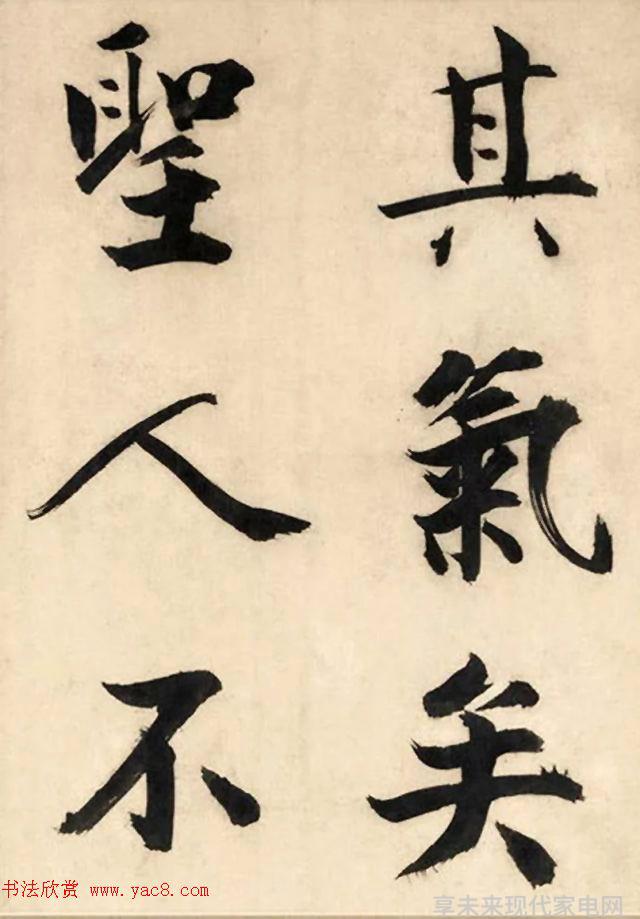 其氣矣
聖人不
书法欣赏 www.yac8.com
享未来现代家电网